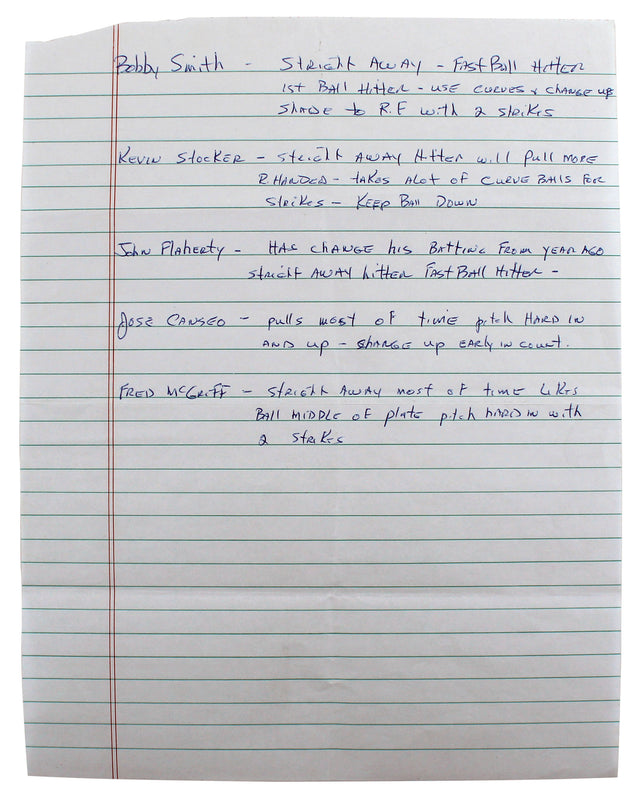 Bobby Smith - Stright Away - Fast Ball Hitter
1st Ball Hitter - use curves & change up
shade to R.F with 2 strikes
Kevin Stocker - Stright Away Hitter will pull more
R. Handed - takes alot of curve balls for
strikes - Keep Ball Down
John Flaherty - Has change his Batting from year ago
stright away hitter Fast Ball Hitter -
Jose Canseo - pulls most of time pitch Hard in
and up - change up early in count.
Fred McGriff - Stright Away most of time likes
Ball middle of plate pitch hard in with
2 strikes